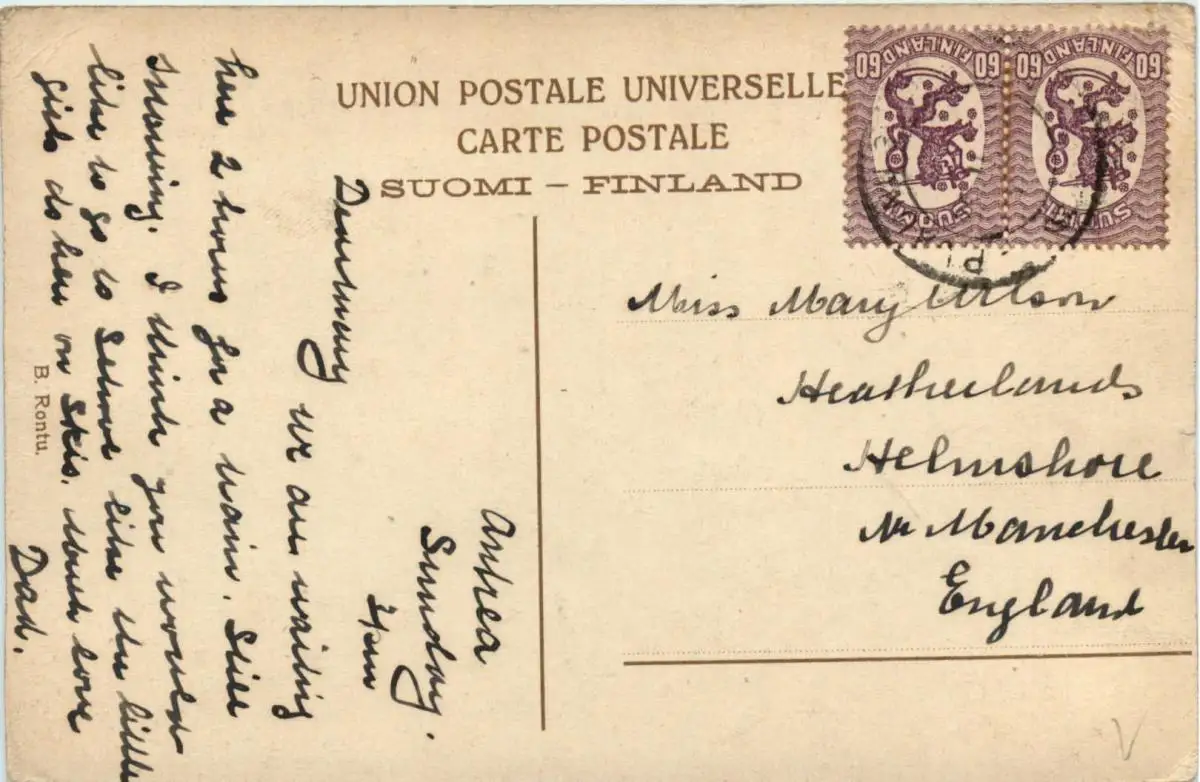 UNION POSTALE UNIVERSELLE
CARTE POSTALE
SUOMI – FINLAND
60 FINLAND 60
SUOMI
60 FINLAND 60
SUOMI
Miss Mary Wilson
Heatherlands
Helmshore
Nr Manchester
England
Sunday.
Dearmeny
we are waiting
here 2 hours for a train. Still
snowing. I think you would
like to go to School like the little
girls do here on Skis. Much love
Dad.
B. Rontu.